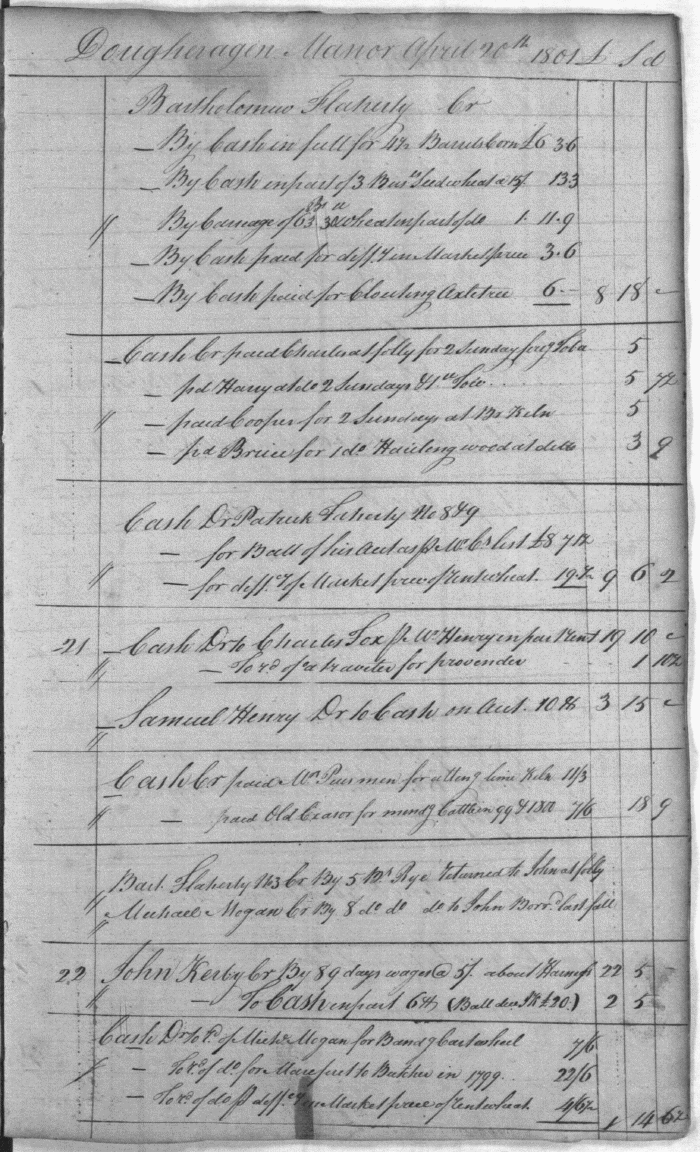 Dougheragen Manor April 20th 1801 £ S d
Bartholomew Flaherty Cr
— By Cash in full for 4½ Barrels Corn £6 3 6
— By Cash in part of 3 Bus Seed wheat a 15/ 13 3
" By Carriage of 63 Bs wheat in part of do 1. 11. 9
— By Cash paid for diff. in Market price 3. 6
— By Cash paid for Clouting Axletree 6.— 8 18 —
— Cash Cr paid Charles at folly for 2 Sundays 5
— pd Harry at do 2 Sundays & 1 5 7½
" — paid Cooper for 2 Sundays at Br Keln 5
— pd Brice for 1 do Hauling wood at ditto 3 9
Cash Dr Patrick Flaherty No 8 & 9
— for Ball of his Acct as pr Mr Cs list £8 7 1½
" — for diff. of Market price of Rent wheat 19 9 6 2
21 — Cash Dr to Charles Fox pr Mr Henry in part Rent 19 10 —
" — To rd of a traveler for provender 1 10½
— Samuel Henry Dr to Cash on Acct. 3 15 —
"
Cash Cr paid Mr men for lime Keln 11/3
" — paid Old Ceasor for mendg Cattle in 99 & 1800 7/6 18 9
Bart. Flaherty No 3 Cr By 5 Bs Rye returned to John at folly
" Michael Mogan Cr By 8 do do do to John Borrd last fall
"
22 John Kerby Cr By 89 days wages @ 5/. about 22 5
" — To Cash in part (Ball due £20.) 2 5
Cash Dr to rd of Michl Mogan for Bandg Cartwheel 7/6
" — To rd of do for Mare put to Batchr in 1799. 22/6
— To rd of do pr diff. in Market price of Rent wheat 4/6½ 1 14 6½